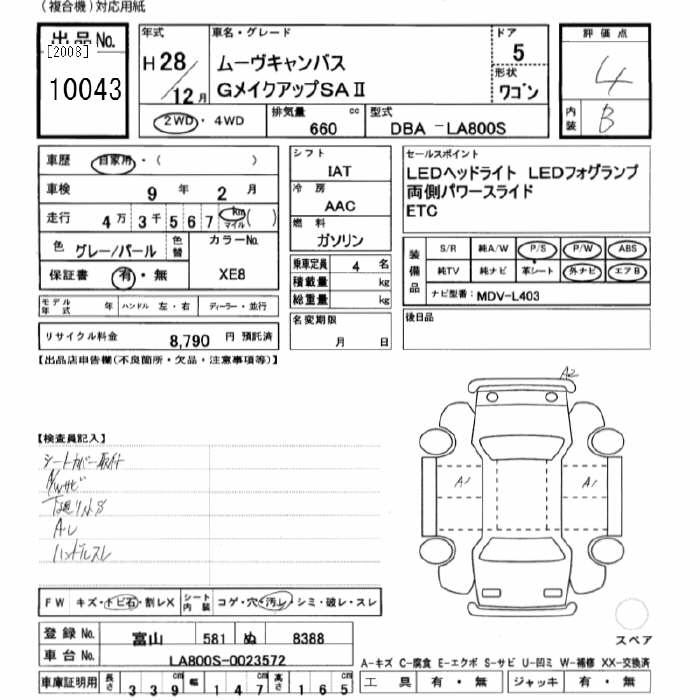 (複合機)対応用紙
出品No.
[2008]
10043
年式
H28/12月
車名・グレード
ムーヴキャンバス
GメイクアップSAⅡ
ドア
5
形状
ワゴン
評価点
4
内装
B
2WD・4WD
排気量
660 cc
型式
DBA -LA800S
車歴 自家用・( )
車検 9年 2月
走行 4万3千567 km マイル ( )
色 グレー/パール 色替
カラーNo.
XE8
保証書 有・無
モデル年式 年 ハンドル 左・右 ディーラー・並行
リサイクル料金 8,790 円 預託済
シフト
IAT
冷房
AAC
燃料
ガソリン
乗車定員 4 名
積載量 kg
総重量 kg
名変期限
月 日
セールスポイント
LEDヘッドライト LEDフォグランプ
両側パワースライド
ETC
装備品
S/R 純A/W P/S P/W ABS
純TV 純ナビ 革シート 外ナビ エアB
ナビ型番: MDV-L403
後日品
【出品店申告欄(不良箇所・欠品・注意事項等)】
【検査員記入】
シートカバー取付
A/Wサビ
下廻りサビ
Aレ
ハンドルスレ
A2
A1
A1
スペア
FW キズ・トビ石・割レX
シート内装 コゲ・穴・汚レ・シミ・破レ・スレ
登録No. 富山 581 ぬ 8388
車台No. LA800S-0023572
車庫証明用 長さ 339 幅 147 高さ 165
A-キズ C-腐食 E-エクボ S-サビ U-凹ミ W-補修 XX-交換済
工具 有・無 ジャッキ 有・無